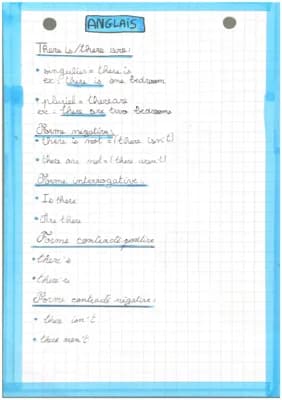 ANGLAIS
There is/there are:
• singulier = there is
ex: there is one bedroom
• pluriel = there are
ex: there are two bedrooms
Forme négative:
• there is not = (there isn't)
• there are not = (there aren't)
Forme interrogative:
• Is there
• Are there
Forme contracté positive
• there's
• there're
Forme contracté négative:
• there isn't
• there aren't